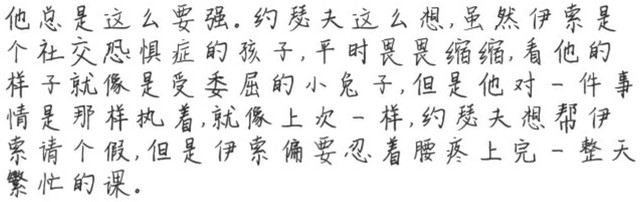 他总是这么要强。约瑟夫这么想,虽然伊索是
个社交恐惧症的孩子,平时畏畏缩缩,看他的
样子就像是受委屈的小兔子,但是他对一件事
情是那样执着,就像上次一样,约瑟夫想帮伊
索请个假,但是伊索偏要忍着腰疼上完一整天
繁忙的课。